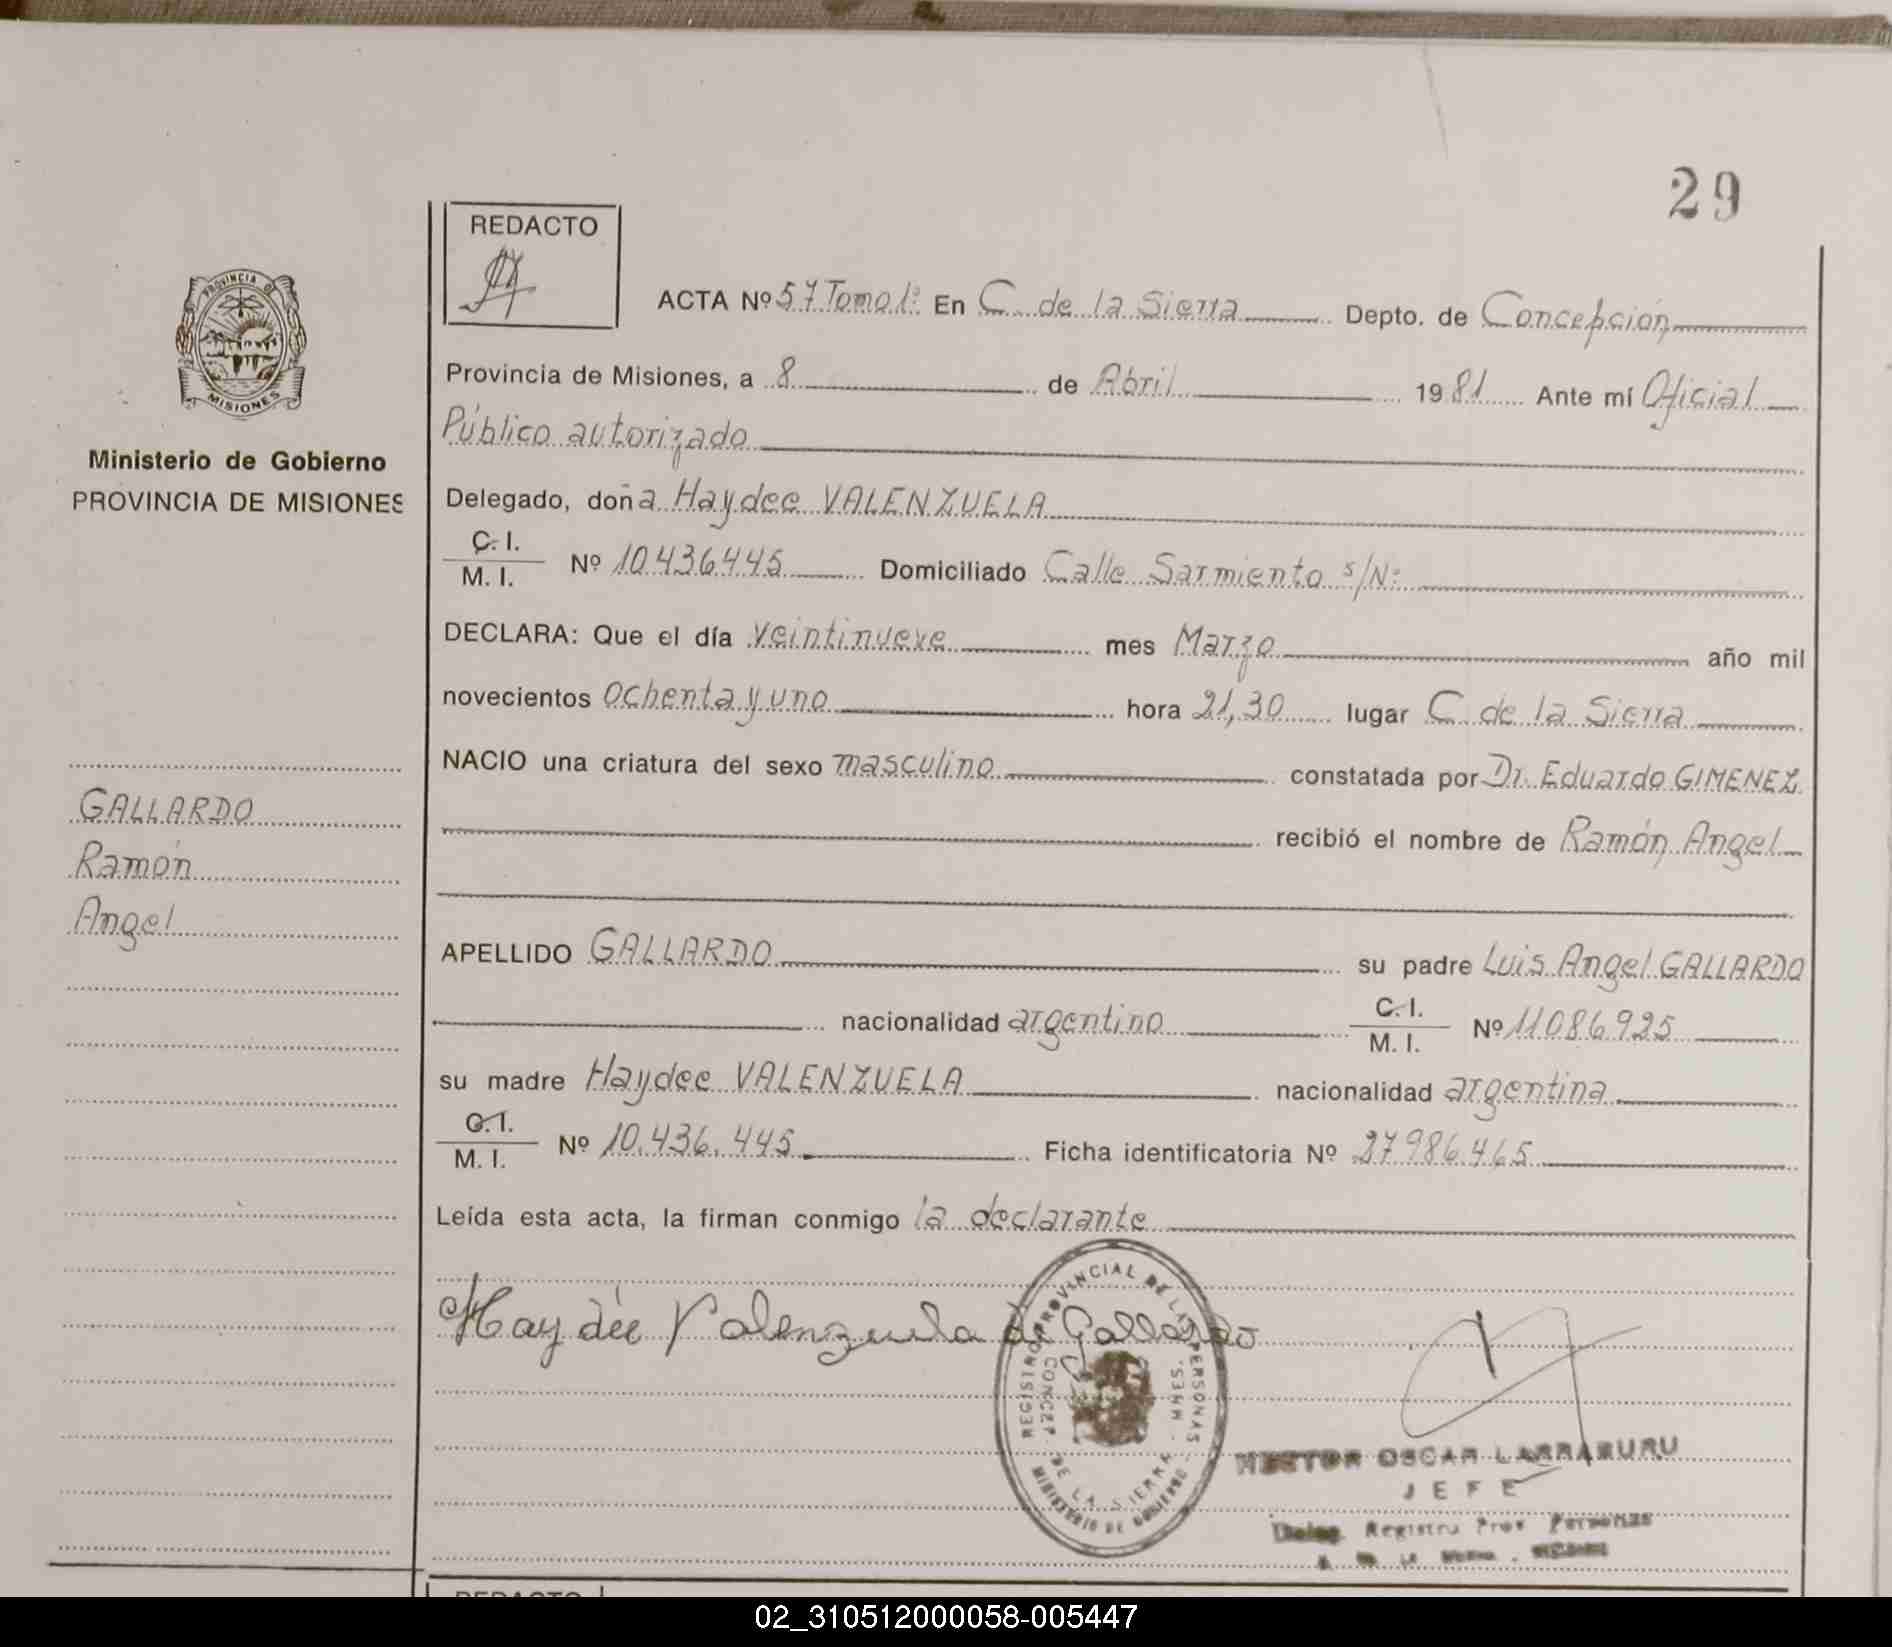 29
REDACTO
PROVINCIA DE
MISIONES
Ministerio de Gobierno
PROVINCIA DE MISIONES
GALLARDO
Ramón
Angel
ACTA Nº 57 Tomo 1º En C. de la Sierra Depto. de Concepción
Provincia de Misiones, a 8 de Abril 1981 Ante mí Oficial
Público autorizado
Delegado, doña Haydee VALENZUELA
C. I.
M. I. Nº 10.436.445 Domiciliado Calle Sarmiento s/Nº
DECLARA: Que el día veintinueve mes Marzo año mil
novecientos ochenta y uno hora 21,30 lugar C. de la Sierra
NACIO una criatura del sexo masculino constatada por Dr. Eduardo GIMENEZ
recibió el nombre de Ramón Angel
APELLIDO GALLARDO su padre Luis Angel GALLARDO
nacionalidad argentino C. I. M. I. Nº 11.086.925
su madre Haydee VALENZUELA nacionalidad argentina
C. I.
M. I. Nº 10.436.445 Ficha identificatoria Nº 27.986.465
Leída esta acta, la firman conmigo la declarante
Haydée Valenzuela de Gallardo
REGISTRO PROVINCIAL DE LAS PERSONAS
CONCEP. DE LA SIERRA. MNES.
MINISTERIO DE GOBIERNO
NESTOR OSCAR LARRABURU
JEFE
Deleg. Registro Prov. Personas
REDACTO
02_310512000058-005447